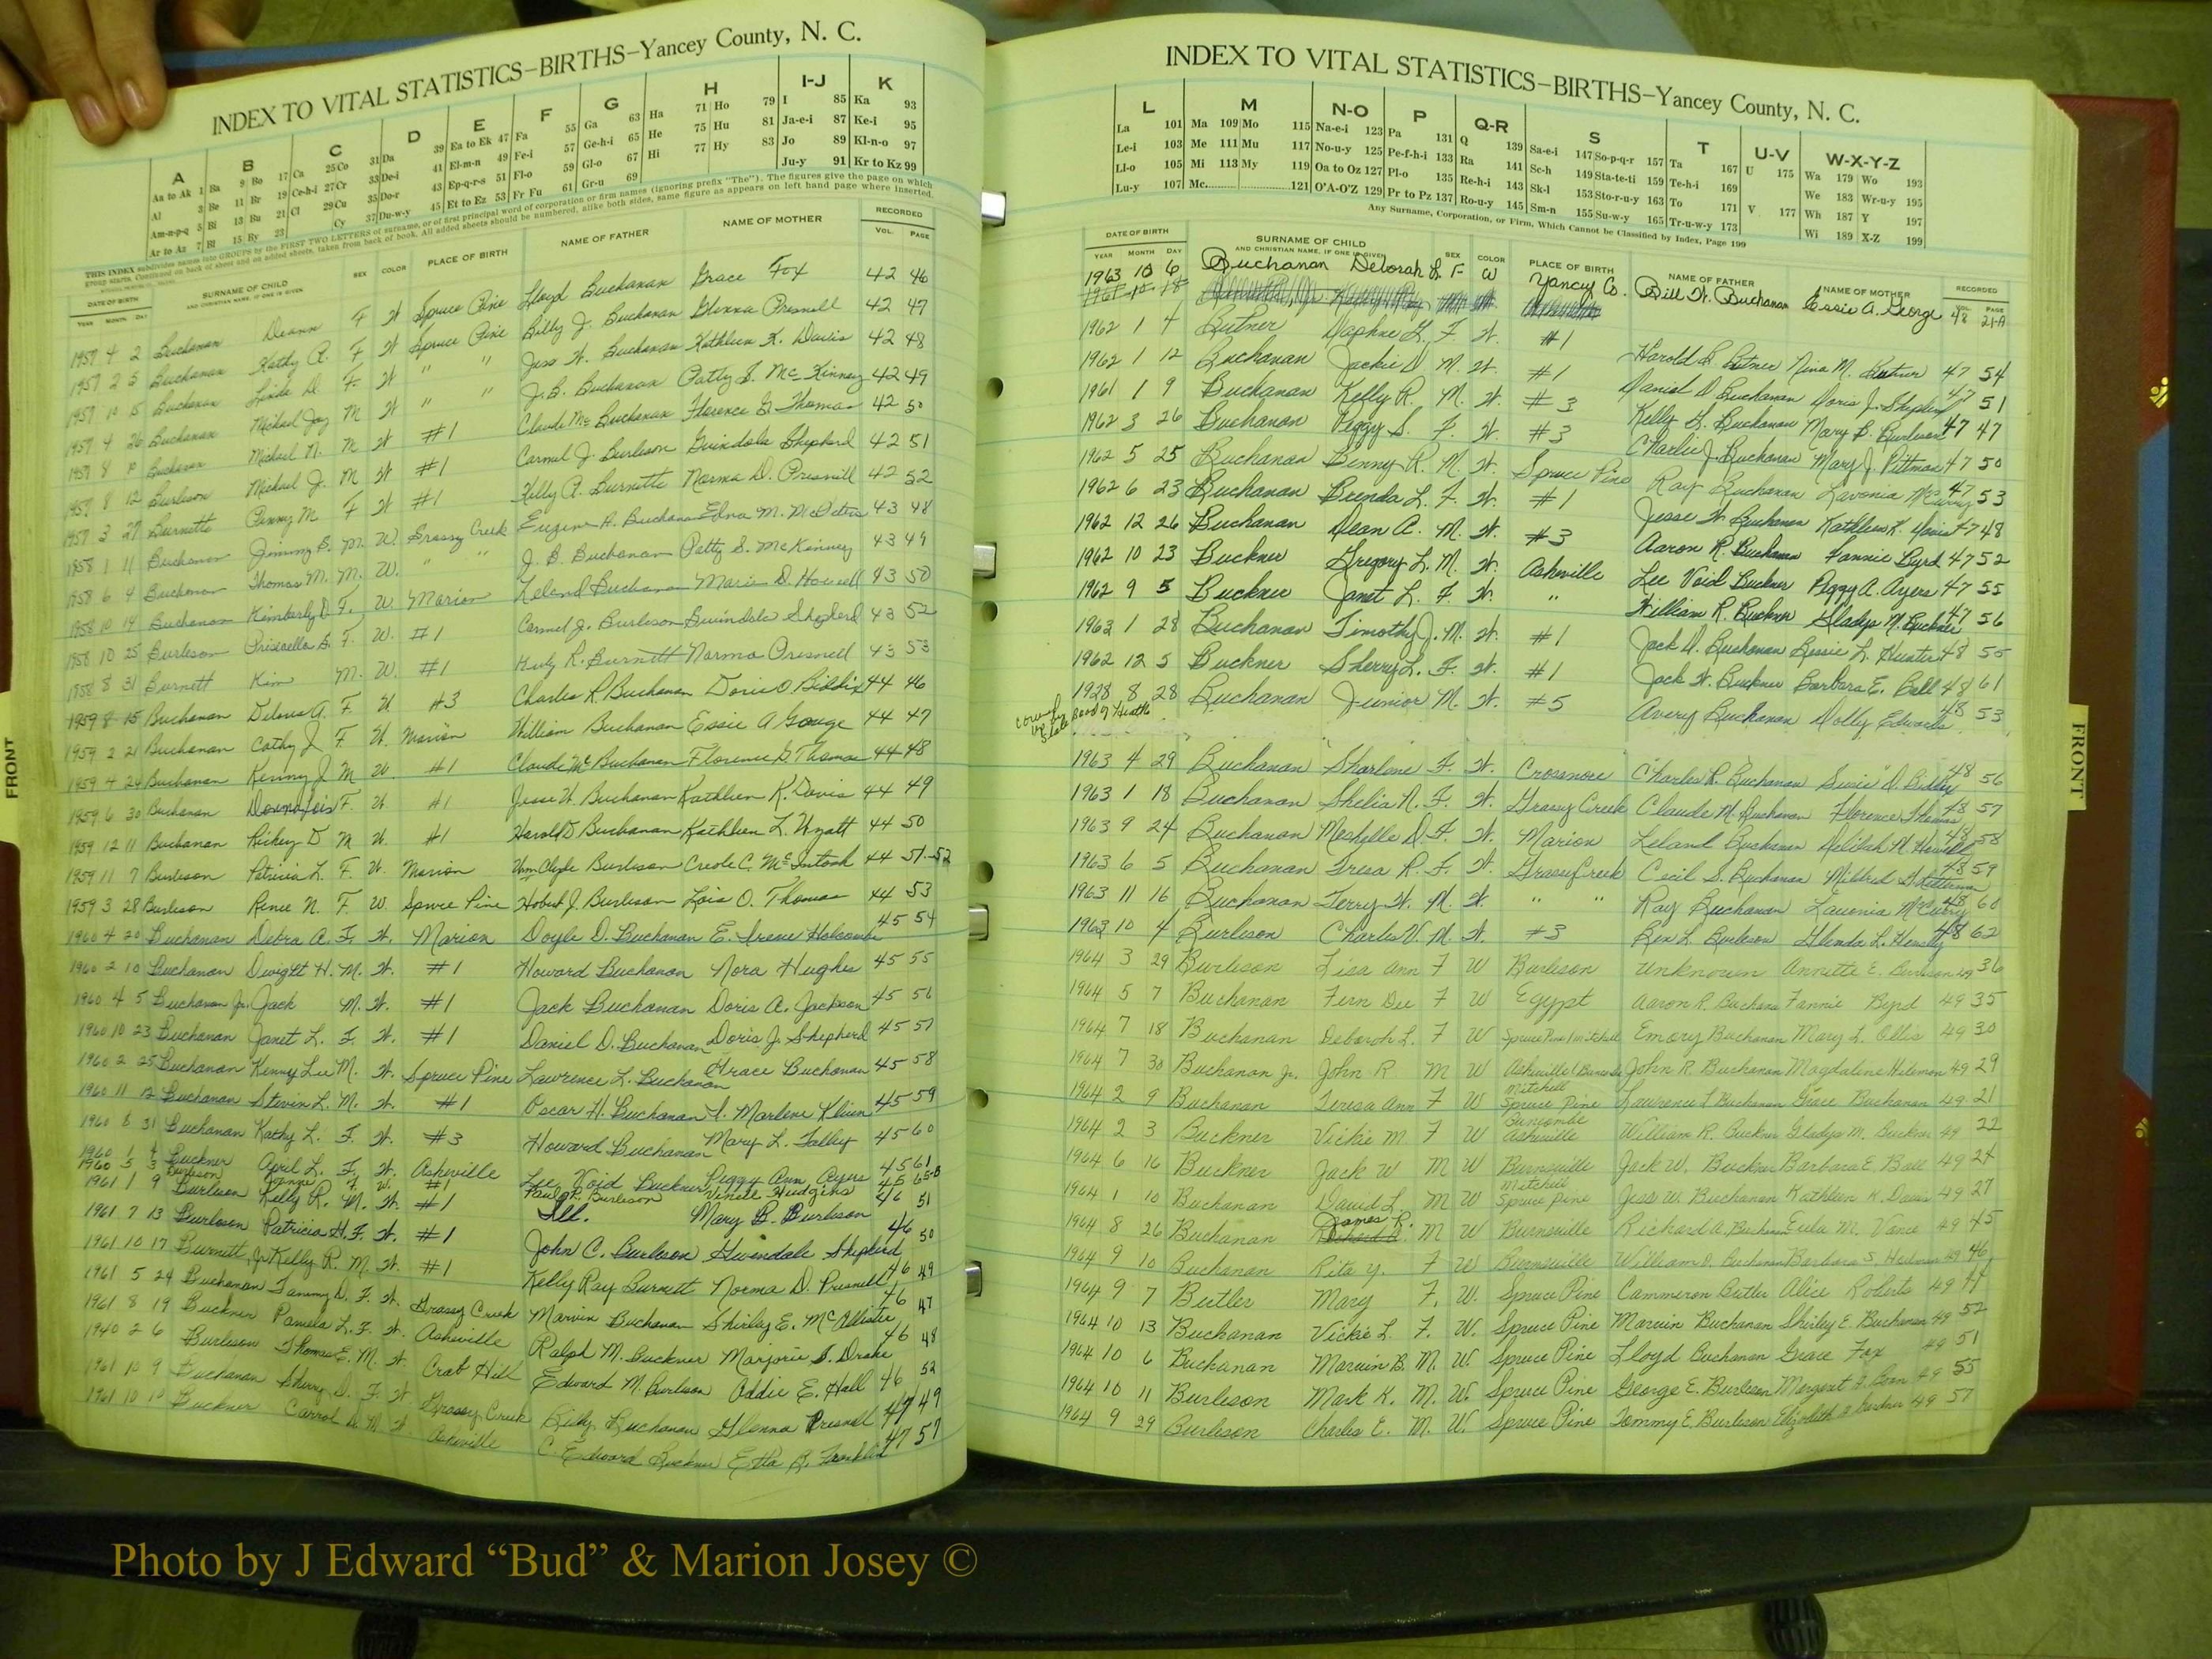 INDEX TO VITAL STATISTICS–BIRTHS–Yancey County, N. C.
A B C D E F G H I-J K
Aa to Ak 1 Ba 9 Bo 17 Ca 25 Co 31 Da 39 Ea to Ek 47 Fa 55 Ga 63 Ha 71 Ho 79 I 85 Ka 93
Al 3 Be 11 Br 19 Ce-h-i 27 Cr 33 De-i 41 El-m-n 49 Fe-i 57 Ge-h-i 65 He 75 Hu 81 Ja-e-i 87 Ke-i 95
Am-n-p-q 5 Bi 13 Bu 21 Cl 29 Cu 35 Do-r 43 Ep-q-r-s 51 Fl-o 59 Gl-o 67 Hi 77 Hy 83 Jo 89 Kl-n-o 97
Ar to Az 7 Bl 15 By 23 Cy 37 Du-w-y 45 Et to Ez 53 Fr Fu 61 Gr-u 69 Ju-y 91 Kr to Kz 99
THIS INDEX subdivides names into GROUPS by the FIRST TWO LETTERS of surname, or of first principal word of corporation or firm names (ignoring prefix "The"). The figures give the page on which
group starts. Continued on back of sheet and on added sheets, taken from back of book. All added sheets should be numbered, alike both sides, same figure as appears on left hand page where inserted.
DATE OF BIRTH SURNAME OF CHILD SEX COLOR PLACE OF BIRTH NAME OF FATHER NAME OF MOTHER RECORDED
YEAR MONTH DAY AND CHRISTIAN NAME, IF ONE IS GIVEN VOL. PAGE
1957 4 2 Buchanan Deann F W Spruce Pine Lloyd Buchanan Grace Fox 42 46
1957 2 5 Buchanan Kathy A. F W Spruce Pine Billy J. Buchanan Glenna Presnell 42 47
1957 10 15 Buchanan Linda D. F. W " " Jess W. Buchanan Kathleen K. Davis 42 48
1957 4 26 Buchanan Michael Jay M W " " J.B. Buchanan Patty S. McKinney 42 49
1957 8 Buchanan Michael N. M W #1 Claude Mc Buchanan Florence G. Thomas 42 50
1957 8 12 Burleson Michael J. M W #1 Carmel J. Burleson Guindola Shepherd 42 51
1957 3 27 Burnette Penny M F W #1 Kelly R. Burnette Norma D. Presnell 42 52
1958 1 11 Buchanan Jimmy E. M. W. Grassy Creek Eugene A. Buchanan Edna M. McPeters 43 48
1958 6 4 Buchanan Thomas M. M. W. " J. B. Buchanan Patty S. McKinney 43 49
1958 10 14 Buchanan Kimberly D. F. W Marion Leland Buchanan Marie D. Howell 43 50
1958 10 25 Burleson Priscilla G. F. W. #1 Carmel J. Burleson Guindola Shepherd 43 52
1958 8 31 Burnett Kim M. W. #1 Kelly R. Burnett Norma Presnell 43 53
1959 8 15 Buchanan Delores A. F W #3 Charles R. Buchanan Doris O Biddix 44 46
1959 2 21 Buchanan Cathy J F W. Marion William Buchanan Essie A Gouge 44 47
1959 4 24 Buchanan Kenny J M W. #1 Claude Mc Buchanan Florence G. Thomas 44 48
1959 6 30 Buchanan Donna Lois F. W. #1 Jesse W. Buchanan Kathleen K. Davis 44 49
1959 12 11 Buchanan Rickey D M W. #1 Harold D Buchanan Kathleen L. Wyatt 44 50
1959 11 7 Burleson Patricia L. F. W. Marion Wm Clyde Burleson Creole C. McIntosh 44 51-52
1959 3 28 Burleson Renee N. F. W. Spruce Pine Hobert J. Burleson Lois O. Thomas 44 53
1960 4 20 Buchanan Debra A. F. W. Marion Doyle D. Buchanan E. Irene Holcombe 45 54
1960 2 10 Buchanan Dwight H. M. W. #1 Howard Buchanan Nora Hughes 45 55
1960 4 5 Buchanan Jr. Jack M. W. #1 Jack Buchanan Doris A. Jackson 45 56
1960 10 23 Buchanan Janet L. F. W. #1 Daniel D. Buchanan Doris J. Shepherd 45 57
1960 2 25 Buchanan Kenny Lee M. W. Spruce Pine Lawrence L. Buchanan Grace Buchanan 45 58
1960 11 12 Buchanan Stevin L. M. W. #1 Oscar H. Buchanan I. Marlene Klein 45 59
1960 8 31 Buchanan Kathy L. F. W. #3 Howard Buchanan Mary L. Talley 45 60
1960 1 4 Buckner April L. F. W. Asheville Lee Void Buckner Peggy Ann Ayers 45 61
1960 5 3 Burleson F W. #1 Paul R. Burleson Hudgins 45 65-B
1961 1 9 Burleson Kelly R. M. W. #1 Ill. Mary B. Burleson 46 51
1961 7 13 Burleson Patricia H. F. W. #1 John C. Burleson Gwendale Shepherd 46 50
1961 10 17 Burnett, Jr Kelly R. M. W. #1 Kelly Ray Burnett Norma D. Presnell 46 49
1961 5 24 Buchanan Tammy D. F. W. Grassy Creek Marvin Buchanan Shirley E. McAllister 46 47
1961 8 19 Buckner Pamela L. F. W. Asheville Ralph M. Buckner Marjorie S. Drake 46 48
1940 2 6 Burleson Thomas E. M. W. Crab Hill Edward M. Burleson Addie E. Hall 46 52
1961 10 9 Buchanan Sherry D. F. W. Grassy Creek Billy Buchanan Glenna Presnell 47 49
1961 10 10 Buckner Carrol M W Asheville C Edward Buckner Etta B. Franklin 47 57
INDEX TO VITAL STATISTICS–BIRTHS–Yancey County, N. C.
L M N-O P Q-R S T U-V W-X-Y-Z
La 101 Ma 109 Mo 115 Na-e-i 123 Pa 131 Q 139 Sa-e-i 147 So-p-q-r 157 Ta 167 U 175 Wa 179 Wo 193
Le-i 103 Me 111 Mu 117 No-u-y 125 Pe-f-h-i 133 Ra 141 Sc-h 149 Sta-te-ti 159 Te-h-i 169 We 183 Wr-u-y 195
Ll-o 105 Mi 113 My 119 Oa to Oz 127 Pl-o 135 Re-h-i 143 Sk-l 153 Sto-r-u-y 163 To 171 V 177 Wh 187 Y 197
Lu-y 107 Mc 121 O'A-O'Z 129 Pr to Pz 137 Ro-u-y 145 Sm-n 155 Su-w-y 165 Tr-u-w-y 173 Wi 189 X-Z 199
Any Surname, Corporation, or Firm, Which Cannot be Classified by Index, Page 199
DATE OF BIRTH SURNAME OF CHILD SEX COLOR PLACE OF BIRTH NAME OF FATHER NAME OF MOTHER RECORDED
YEAR MONTH DAY AND CHRISTIAN NAME, IF ONE IS GIVEN VOL. PAGE
1963 10 6 Buchanan Deborah L. F W Yancey Co. Bill W. Buchanan Essie A. George 48 21-A
1962 1 4 Butner Daphne L. F. W. #1 Harold B. Butner Nina M. Butner 47 54
1962 1 12 Buchanan Jackie D M. W. #1 Daniel D Buchanan Doris J. Shepherd 47 51
1961 1 9 Buchanan Kelly R. M. W. #3 Kelly G. Buchanan Mary B. Burleson 47 47
1962 3 26 Buchanan Peggy S. F. W. #3 Charlie J. Buchanan Mary J. Pittman 47 50
1962 5 25 Buchanan Benny R. M. W. Spruce Pine Ray Buchanan Lavonia McCurry 47 53
1962 6 23 Buchanan Brenda L. F. W. #1 Jesse W. Buchanan Kathleen K. Davis 47 48
1962 12 26 Buchanan Dean A. M. W. #3 Aaron R. Buchanan Fannie Byrd 47 52
1962 10 23 Buckner Gregory L. M. W. Asheville Lee Void Buckner Peggy A. Ayers 47 55
1962 9 5 Buckner Janet L. F. W. " William R. Buckner Gladys M. Buckner 47 56
1963 1 28 Buchanan Timothy J. M. W. #1 Jack D. Buchanan Bessie L. Hunter 48 55
1962 12 5 Buckner Sherry L. F. W. #1 Jack W. Buckner Barbara E. Ball 48 61
1928 8 28 Buchanan Junior M. W. #5 Avery Buchanan Dolly Edwards 48 53
1963 4 29 Buchanan Sharlene F. W. Crossnore Charles R. Buchanan D. Biddix 48 56
1963 1 18 Buchanan Shelia N. F. W. Grassy Creek Claude M. Buchanan Florence Thomas 48 57
1963 9 24 Buchanan Mechelle D. F. W. Marion Leland Buchanan Delilah M. Howell 48 58
1963 6 5 Buchanan Tresa R. F. W. Grassy Creek Cecil S. Buchanan Mildred 48 59
1963 11 16 Buchanan Terry W. M. W. " " Ray Buchanan Lavonia McCurry 48 60
1963 10 4 Burleson Charles V. M. W. #3 Rex L. Burleson Glenda L. Hensley 48 62
1964 3 29 Burleson Lisa Ann F W Burleson Unknown Annette E. Burleson 49 36
1964 5 7 Buchanan Fern Dee F W Egypt Aaron R. Buchanan Fannie Byrd 49 35
1964 7 18 Buchanan Deborah L. F W Spruce Pine Mitchell Emory Buchanan Mary L. Ollis 49 30
1964 7 30 Buchanan Jr. John R M W Asheville (Buncombe John R Buchanan Magdalene Hileman 49 29
1964 2 9 Buchanan Teresa Ann F W Mitchell Spruce Pine Lawrence L Buchanan Grace Buchanan 49 21
1964 2 3 Buckner Vickie M F W Buncombe Asheville William R. Buckner Gladys M. Buckner 49 22
1964 6 16 Buckner Jack W M W Burnsville Jack W. Buckner Barbara E. Ball 49 24
1964 1 10 Buchanan David L. M W Mitchell Spruce Pine Jess W. Buchanan Kathleen K. Davis 49 27
1964 8 26 Buchanan James R. M W Burnsville Richard A. Buchanan Eula M. Vance 49 45
1964 9 10 Buchanan Rita Y. F W Burnsville William D. Buchanan Barbara S. 49 46
1964 9 7 Butler Mary F. W. Spruce Pine Cammeron Butler Alice Roberts 49 44
1964 10 13 Buchanan Vickie L. F. W. Spruce Pine Marvin Buchanan Shirley E. Buchanan 49 52
1964 10 6 Buchanan Marvin B. M. W. Spruce Pine Lloyd Buchanan Grace Fox 49 51
1964 10 11 Burleson Mark K. M. W. Spruce Pine George E. Burleson Margaret 49 55
1964 9 29 Burleson Charles E. M. W. Spruce Pine Tommy E. Burleson Elizabeth 49 57
FRONT
FRONT
Photo by J Edward “Bud” & Marion Josey ©